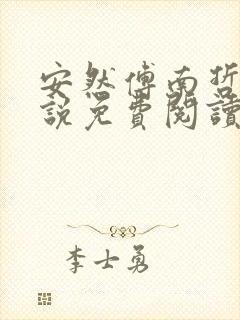 安然傅南哲
說免費閱讀
李士勇